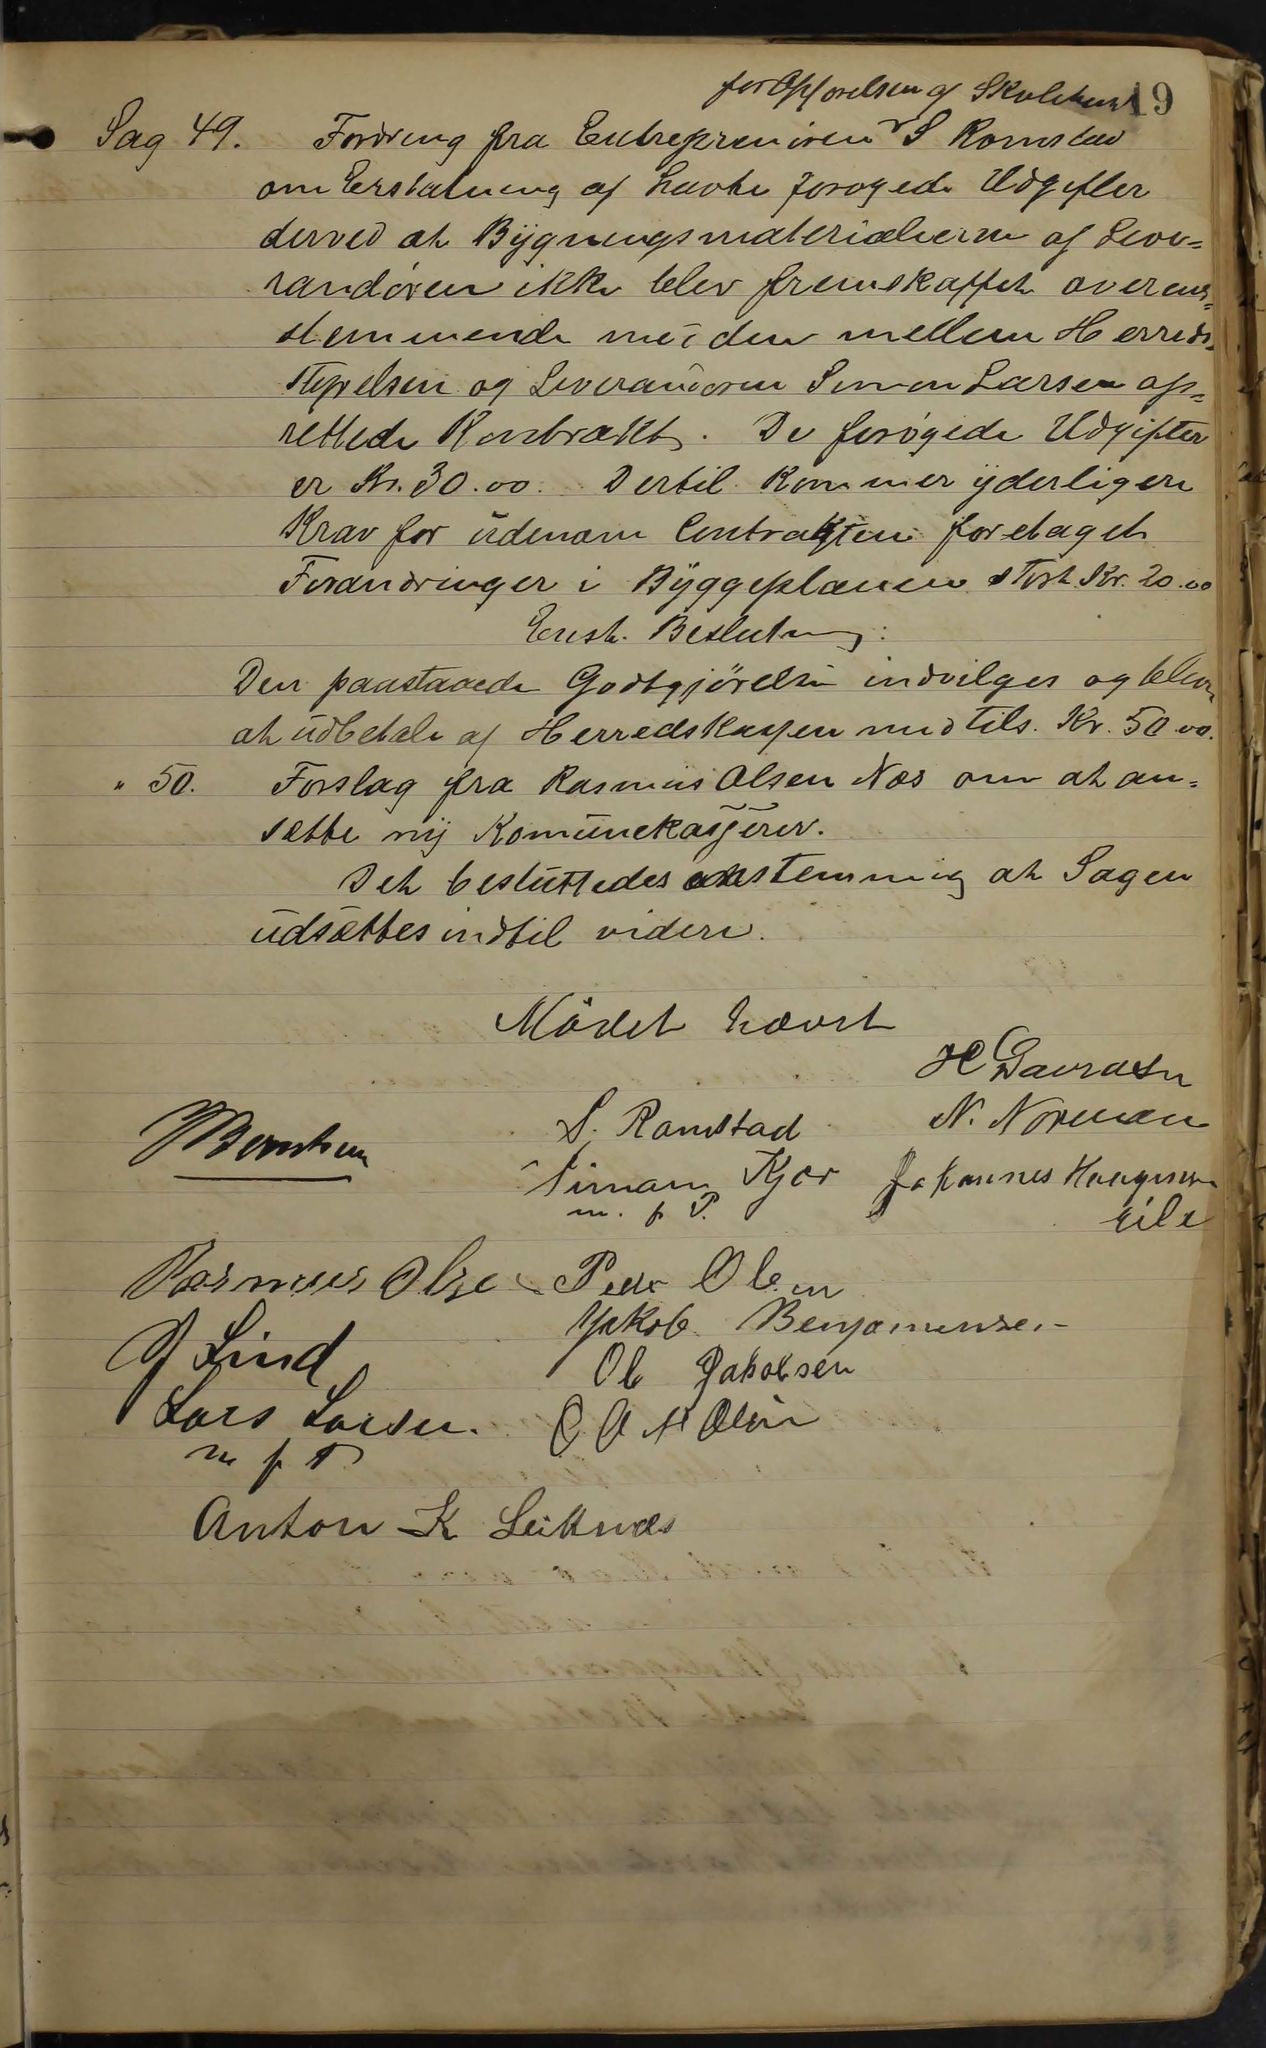 for Opførelsen af Skolehuse
19
Sag 49. Fordring fra Entreprenøren S Romstad
om Erstatning af havte forøgede Udgifter
derved at Bygningsmaterialierne af Leve-
randøren ikke blev fremskaffet overens-
stemmende med den mellem Herreds-
styrelsen og Leverandøren Simon Larsen op-
rettede Kontrakt. De forøgede Udgifter
er Kr. 30.00. Dertil kommer yderligere
Krav for udenom Contrakten foretaget
Forandringer i Byggeplanen stort Kr. 20.00
Enst. Beslutning:
Den paastaaede Godtgjörelse indvilges og blev
at udbetale af Herredskassen med tils. Kr. 50.00.
" 50. Forslag fra Rasmus Olsen Næs om at an-
sætte ny Komunekasserer.
Det besluttedes enstemmig at Sagen
udsættes indtil videre.
Mödet hævet
S. Romstad N. Norman
Simon Kjær Johannes
m. f. P.
Rasmus Olsen Peder Olsen
Jakob Benjaminsen
J Lind
Ole Jakobsen
Lars Larsen. O A M Olsen
m f P
Anton K Leiknæs